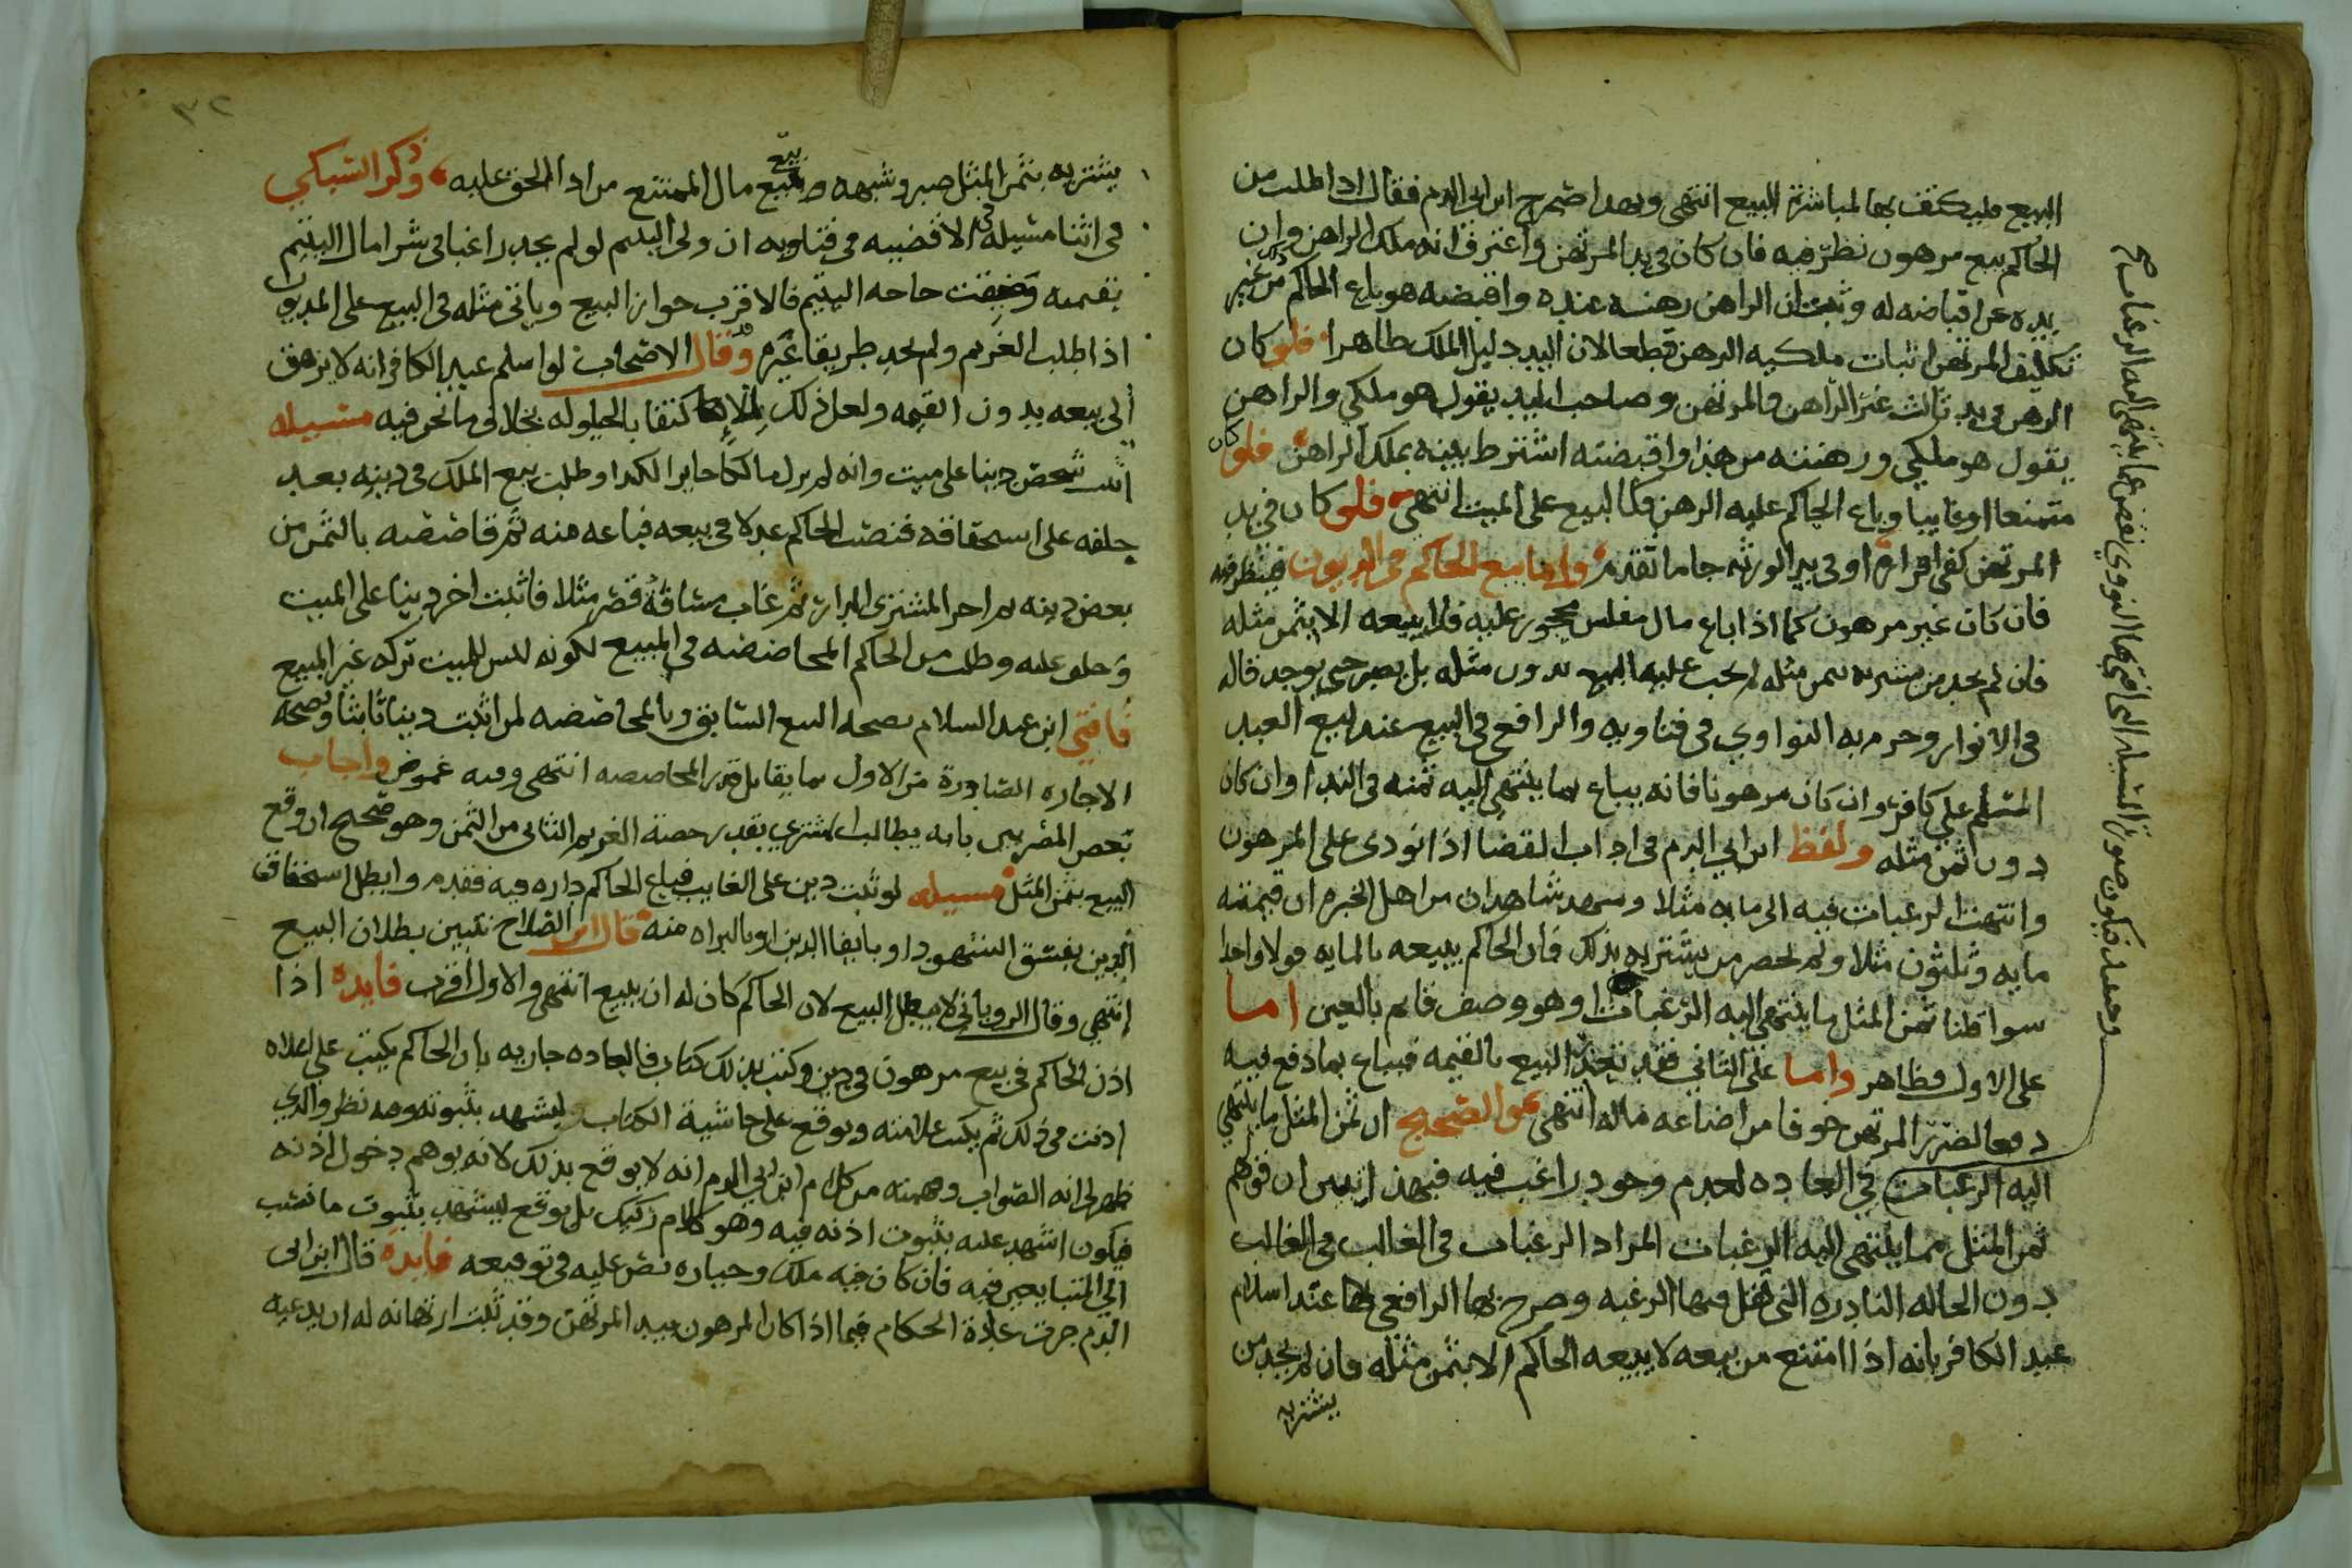 البيع فليكتف بها لمباشرة البيع انتهى وبهذا صرح ابن ابي الدم فقال اذا طلب من
الحاكم بيع مرهون نظر فيه فان كان في يد المرتهن واعترف انه ملك الراهن وان
يده عن اقباضه له وثبت ان الراهن رهنه عنده واقبضه هو باع الحاكم من غير
تكليف المرتهن اثبات ملكيه الرهن قطعا لان اليد دليل الملك ظاهرا فلو كان
الرهن في يد ثالث غير الراهن والمرتهن وصاحب اليد يقول هو ملكي والراهن
يقول هو ملكي ورهنته من هذا واقبضته اشترط بينه بملك الراهن فلو كان
متمنعا او غايبا وباع الحاكم عليه الرهن فكالبيع على الميت انتهى فلو كان في يد
المرتهن كفى اقراره او في يد الورثه جا ما تقدم واما بيع الحاكم في الديون فينظر فيه
فان كان غير مرهون كما اذا باع مال مفلس محجور عليه فلا يبيعه الا بثمن مثله
فان لم يجد من يشتريه بثمن مثله لم يجب عليه البيع بدون مثله بل يصبر حتى يوجد قاله
في الانوار وجزم به النواوي في فتاويه والرافعي في البيع عند بيع العبد
المسلم على كافر وان كان مرهونا فانه يباع بما ينتهي اليه ثمنه في الندا وان كان
دون ثمن مثله ولفظ ابن ابي الدم في اداب القضا اذا نودى على المرهون
وانتهت الرغبات فيه الى مايه مثلا وشهد شاهدان من اهل الخبره ان قيمته
مايه وثلثون مثلا ولم يحضر من يشتريه بذلك فان الحاكم يبيعه بالمايه قولا واحدا
سوا قلنا ثمن المثل ما ينتهي اليه الرغبات او هو وصف قايم بالعين اما
على الاول فظاهر واما على الثاني فقد تعذر البيع بالقيمه فيباع بما دفع فيه
دفعا لضرر المرتهن خوفا من اضاعه ماله انتهى عن الصحيح ان ثمن المثل ما ينتهي
اليه الرغبات في العاده لعدم وجود راغب فيه فبهذا تبين ان قولهم
ثمن المثل مما ينتهي اليه الرغبات المراد الرغبات في الغالب في الغالب
دون الحاله النادره التي تقل فيها الرغبه وصرح بها الرافعي عند اسلام
عبد الكافر بانه اذا امتنع من بيعه لا يبيعه الحاكم الا بثمن مثله فان لم يجد من
يشتريه
وحينئذ فيكون صورة المسيله التي افتى بها النووي نقص عما ينتهى اليه الرغبات صح
٣٢
يشتريه بثمن المثل صبر وشبهه بيع مال الممتنع من ادا الحق عليه وذكر السبكي
في اثنا مسيله في الاقضيه في فتاويه ان ولي اليتيم لو لم يجد راغبا في شرا مال اليتيم
بقيمته وحقت حاجه اليتيم فالاقرب جواز البيع وياتى مثله في البيع على المديون
اذا طلب الغريم ولم يجد طريقا غيره وقد قال الاصحاب لو اسلم عبد الكافر انه لا يرهق
الى بيعه بدون القيمه ولعل ذلك للاكتفا بالحيلوله بخلاف ما نحن فيه مسيله
اثبت شخص دينا على ميت وانه لم يزل مالكا حايزا لكذا وطلب بيع الملك في دينه بعد
حلفه على استحقاقه فنصب الحاكم عدلا في بيعه فباعه منه ثم قاصصه بالثمن من
بعض دينه ثم اجر المشترى الدار ثم غاب مسافة قصر مثلا فاثبت اخر دينا على الميت
وحلف عليه وطلب من الحاكم المحاصصه في المبيع لكونه ليس للميت تركه غير المبيع
فافتي ابن عبد السلام بصحه البيع السابق وبالمحاصصه لمن اثبت دينا ثانيا وبصحه
الاجاره الصادرة من الاول بما يقابل قدر المحاصصه انتهى وفيه غموض واجاب
بعض المصريين بانه يطالب المشتري بقدر حصة الغريم الثاني من الثمن وهو صحيح ان وقع
البيع بثمن المثل مسيله لو ثبت دين على الغايب فباع الحاكم داره فيه فقدم وابطل استحقاق
الدين بفسق الشهود او بايفا الدين او بالبراه منه قال ابن الصلاح نتبين بطلان البيع
انتهي وقال الروياني لا يبطل البيع لان الحاكم كان له ان يبيع انتهى والاول اقرب فايده اذا
اذن الحاكم في بيع مرهون في دين وكتب بذلك كتاب فالعاده جاريه بان الحاكم يكتب على اعلاه
اذنت في ذلك ثم يكتب علامته ويوقع على حاشية الكتاب ليشهد بثبوته وفيه نظر والذي
ظهر لي انه الصواب وفهمته من كلام ابن ابي الدم انه لا يوقع بذلك لانه يوهم دخول اذنه
فيكون اشهد عليه بثبوت اذنه فيه وهو كلام ركيك بل يوقع ليشهد بثبوت ما نسب
الي المتبايعين فيه فان كان فيه ملك وحيازه نص عليه في توقيعه فايده قال ابن ابي
الدم جرت عادة الحكام فيما اذا كان المرهون بيد المرتهن وقد ثبت ارتهانه له ان يدعيه